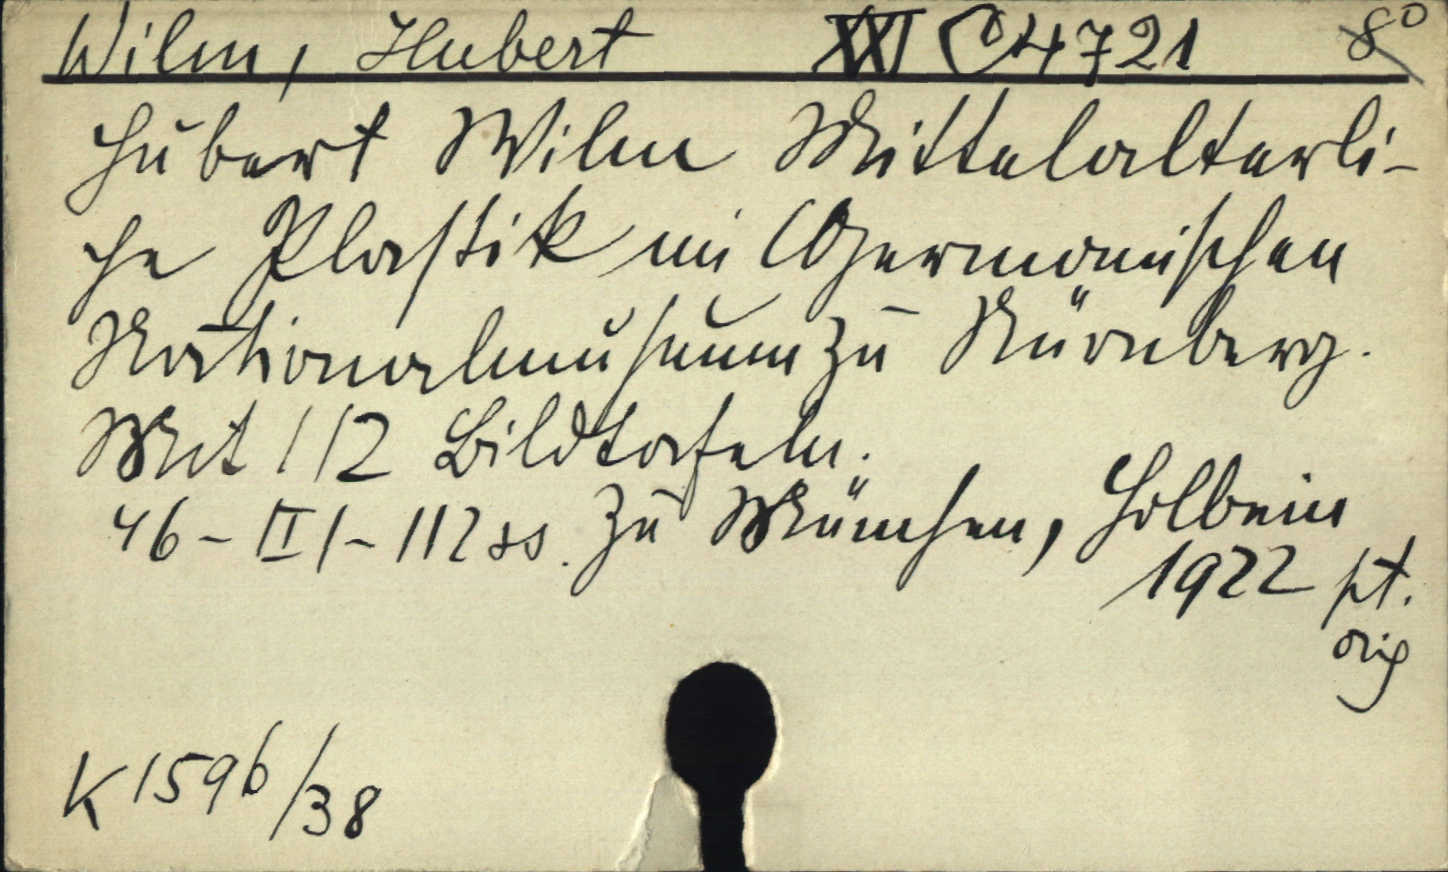 Wilm, Hubert XXI C 4721 8°
Hubert Wilm Mittelalterli-
che Plastik im Germanischen
Nationalmuseum zu Nürnberg.
Mit 112 Bildtafeln.
46 - II 1 - 112 ss. Zu München, Holbein
1922 pt.
orig
K 1596/38